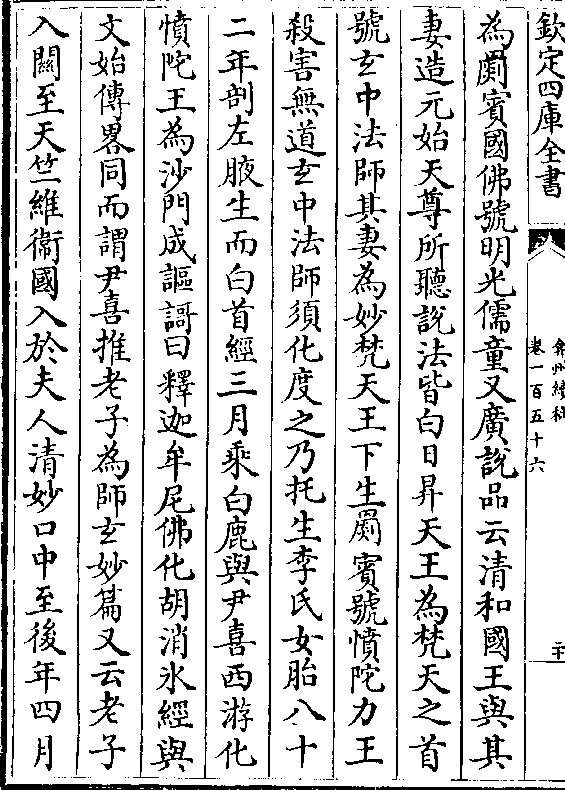 欽定四庫全書
弇州續稿
卷一百五十六
二十
為罽賓國佛號明光儒童又廣說品云清和國王與其
妻造元始天尊所聽說法皆白日昇天王為梵天之首
號玄中法師其妻為妙梵天王下生罽賓號憤陀力王
殺害無道玄中法師須化度之乃托生李氏女胎八十
二年剖左腋生而白首經三月乘白鹿與尹喜西游化
憤陀王為沙門成謳謌曰釋迦牟尼佛化胡消氷經與
文始傳畧同而謂尹喜推老子為師玄妙篇又云老子
入關至天竺維衞國入於夫人清妙口中至後年四月